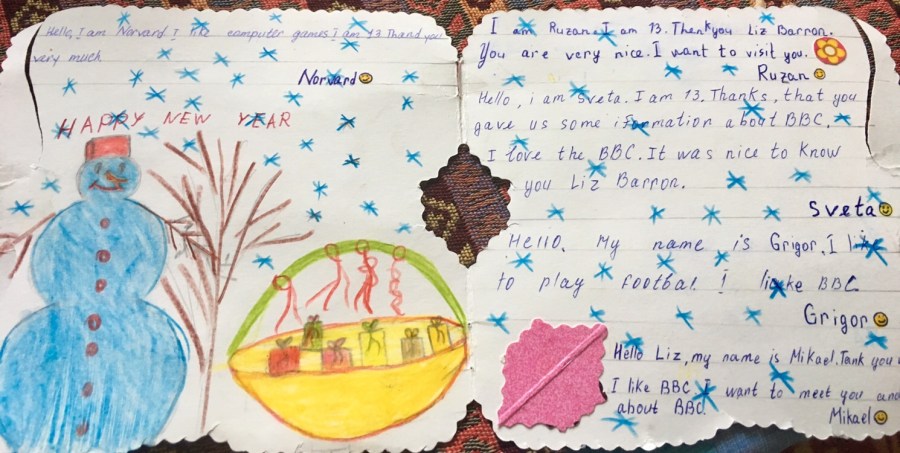 Hello, I am Norvard I like computer games i am 13 Thand you
very much
Norvard
HAPPY NEW YEAR
I am Ruzan. I am 13. Thankyou Liz Barron.
You are very nice. I want to visit you.
Ruzan
Hello, i am Sveta. I am 13. Thanks, that you
gave us some iformation about BBC.
I love the BBC. It was nice to know
you Liz Barron.
Sveta
Hello. My name is Grigor. I like
to play footbal. I licke BBC
Grigor
Hello Liz, my name is Mikael. Tank you
I like BBC I want to meet you and
about BBC.
Mikael